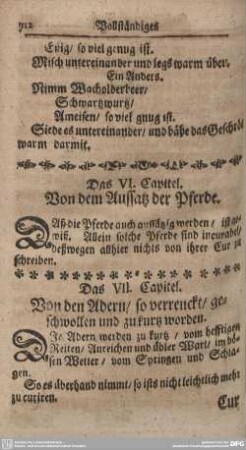 912 Vollständiges
Essig / so viel genug ist.
Misch untereinander und legs warm über.
Ein Anders.
Nimm Wacholderbeer /
Schwartzwurtz /
Ameisen / so viel gnug ist.
Siede es untereinander / und bähe das Geschröt
warm darmit.
Das VI. Capitel.
Von dem Aussatz der Pferde.
DAß die Pferde auch aussätzig werden / ist ge-
wiß. Allein solche Pferde sind incurabel /
deßwegen allhier nichts von ihrer Cur zu
schreiben.
Das VII. Capitel.
Von den Adern / so verrenckt / ge-
schwollen und zu kurtz worden.
DIe Adern werden zu kurtz / vom hefftigen
Reiten / Anreichen und übler Wart / im bö-
sen Wetter / vom Springen und Schla-
gen.
So es überhand nimmt / so ists nicht leichtlich mehr
zu curiren.
Cur